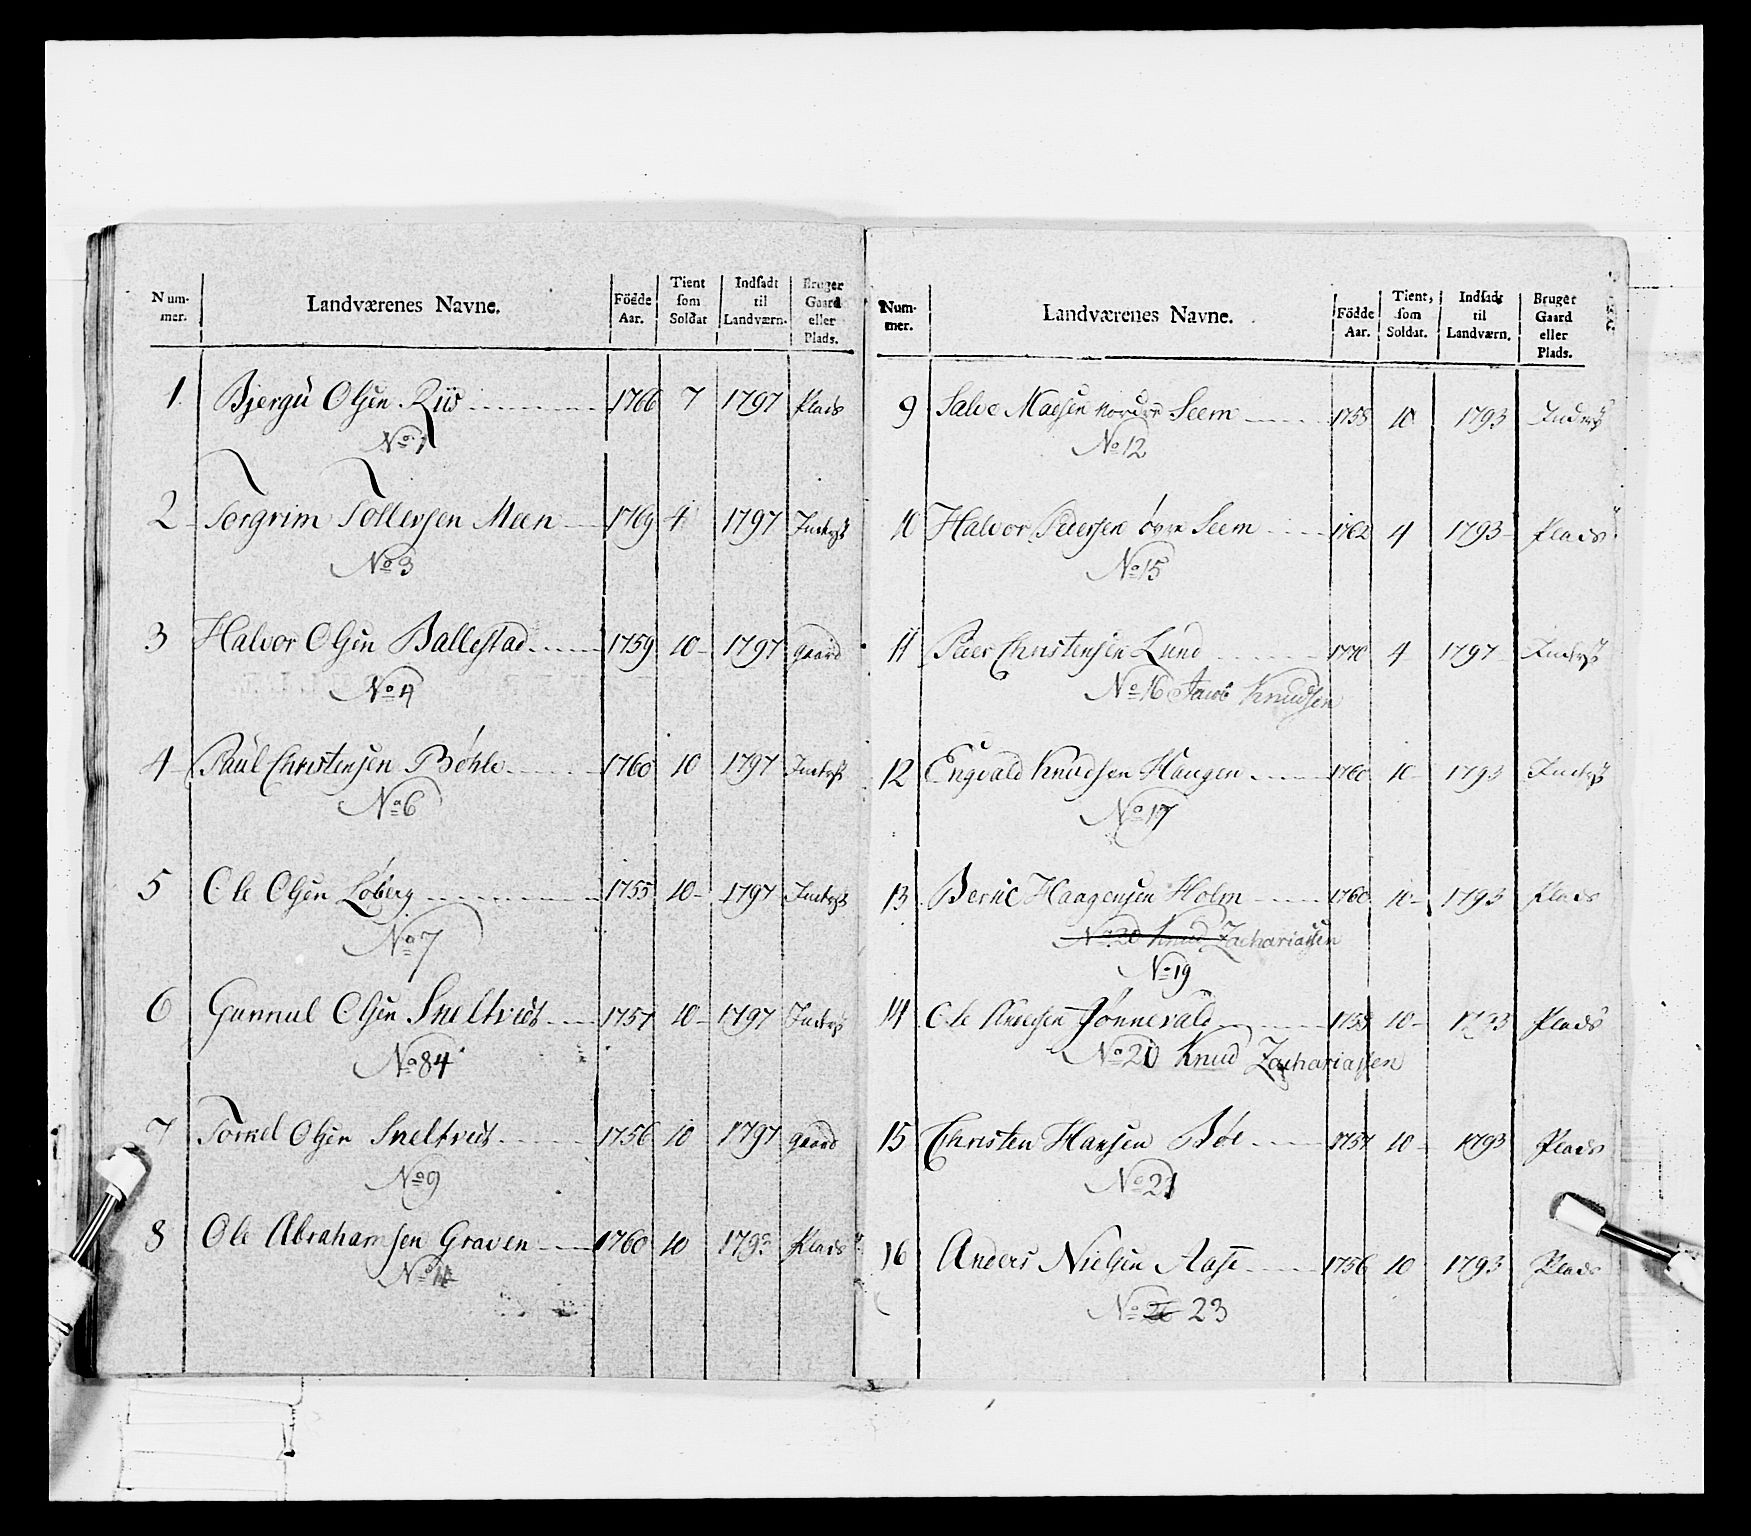 Num-
mer.
Landværenes Navne.
Födde
Aar.
Tient
som
Soldat
Indsadt
til
Landværn.
Bruger
Gaard
eller
Plads.
1. Bjergu Olsen Riis 1766 7 1797 Plads
No 1
2 Torgrim Tollefsen Meen 1769 4 1797 Inderst
No 3
3 Halvor Olsen Ballestad 1759 10 1797 gaard
No 4
4 Paul Christensen Böhle 1760 10 1797 Inderst
No 6
5 Ole Olsen Löberg 1755 10 1797 Inderst
No 7
6 Gunnul Olsen Sneltvedt 1757 10 1797 Inderst
No 84
7 Torkel Olsen Sneltvedt 1756 10 1797 gaard
No 9
8 Ole Abrahamsen Graven 1760 10 Plads
No
Num-
mer.
Landværenes Navne.
Födde
Aar.
Tient,
som
Soldat.
Indsadt
til
Landværn.
Bruget
Gaard
eller
Plads.
9 Salve Madsen nordre Seem 1758 10 1793 Inderst
No 12
10 Halvor Pedersen övre Seem 1762 4 1793 Plads
No 15
11 Peder Christensen Lund 1770 4 1797 Inderst
No 16 Jacob Knudsen
12 Engvald Knudsen Haugen 1760 10 1793 Inderst
No 17
13 Bernt Haagensen Holm 1760 10 1793 Plads
No 20 Knud Zachariassen
No 19
14 Ole Knudsen Jönnevald 1758 10 1793 Plads
No 20 Knud Zachariassen
15 Christen Hansen Böe 1757 10 1793 Plads
No 21
16 Anders Nielsen Aase 1756 10 1793 Plads
No 23